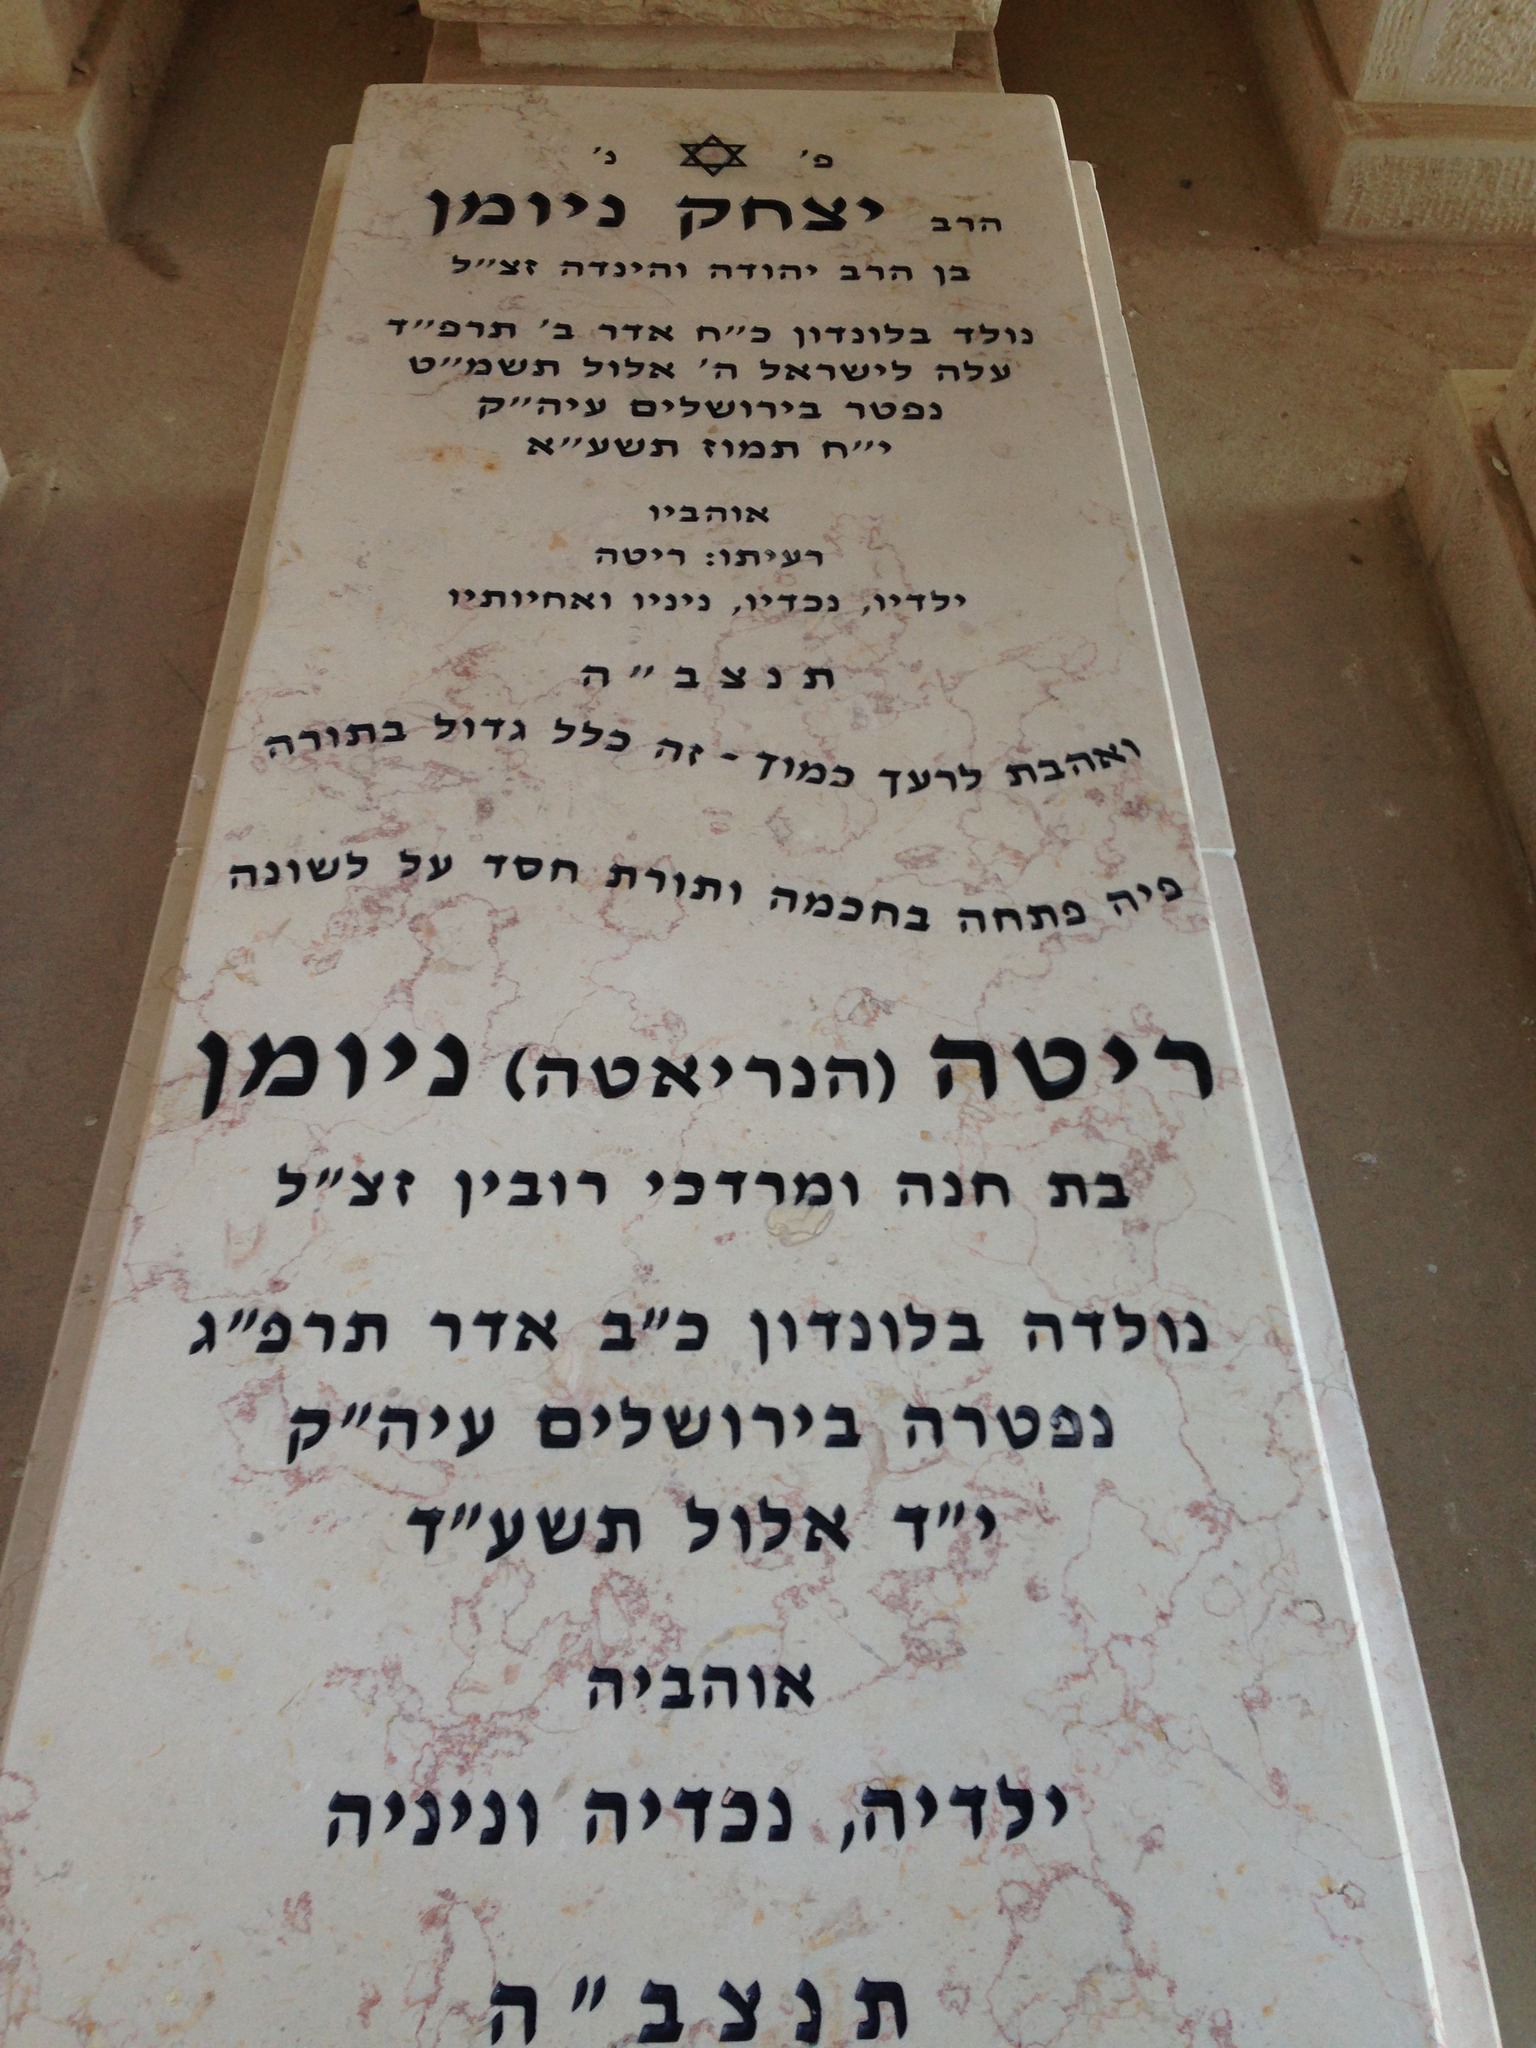 פ' נ'
הרב יצחק ניומן
בן הרב יהודה והינדה זצ״ל
נולד בלונדון כ״ח אדר ב' תרפ״ד
עלה לישראל ה' אלול תשמ״ט
נפטר בירושלים עיה״ק
י״ח תמוז תשע״א
אוהביו
רעיתו: ריטה
ילדיו, נכדיו, ניניו ואחיותיו
ת נ צ ב ״ ה
ואהבת לרעך כמוך - זה כלל גדול בתורה
פיה פתחה בחכמה ותורת חסד על לשונה
ריטה (הנריאטה) ניומן
בת חנה ומרדכי רובין זצ״ל
נולדה בלונדון כ״ב אדר תרפ״ג
נפטרה בירושלים עיה״ק
י״ד אלול תשע״ד
אוהביה
ילדיה, נכדיה וניניה
ת נ צ ב ״ ה